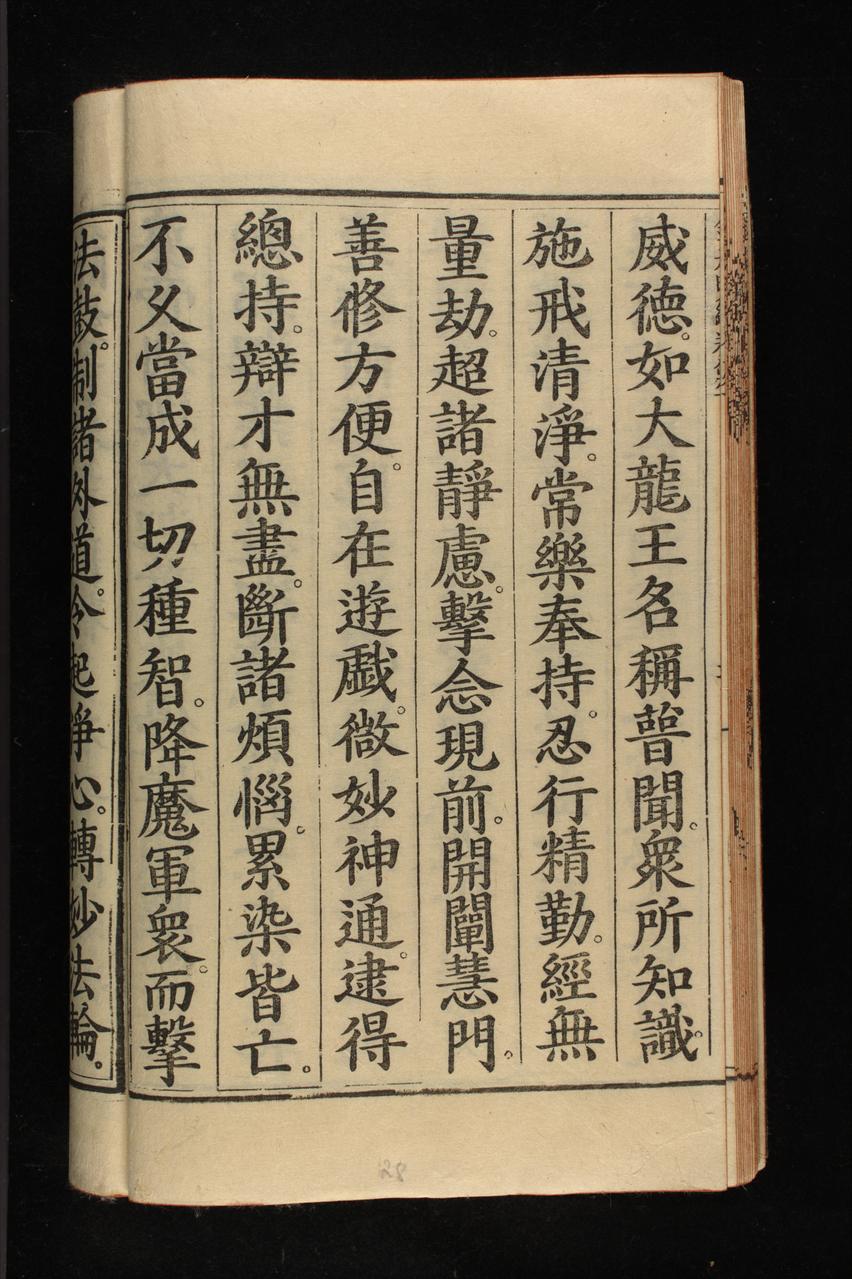 威德。如大龍王名稱普聞。衆所知識。
施戒清淨。常樂奉持。忍行精勤。經無
量劫。超諸靜慮。繫念現前。開闡慧門。
善修方便。自在遊戲。微妙神通。逮得
總持。辯才無盡。斷諸煩惱。累染皆亡。
不久當成一切種智。降魔軍衆。而擊
法鼓。制諸外道。令起淨心。轉妙法輪。